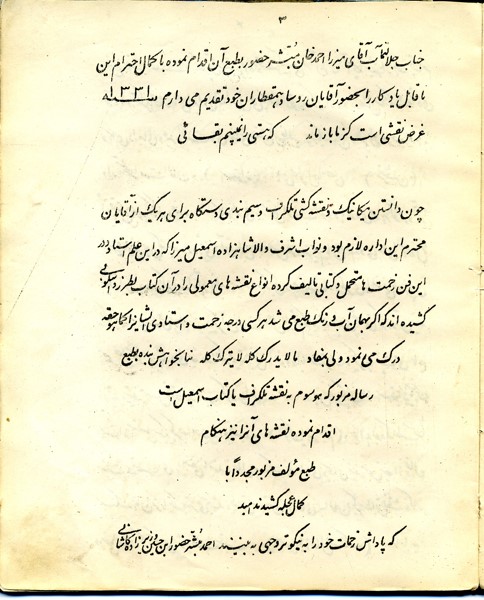 ۳
جناب جلالتمآب آقای میرزا احمدخان مبشر حضور بطبع آن اقدام نموده با کمال احترام این
ناقابل یادگار را بحضور آقایان روسا و همقطاران خود تقدیم می دارم سنه ۱۳۳۱
غرض نقشی است کز ما باز ماند که هستی را نمیبینم بقائی
چون دانستن میکانیک و نقشه کشی تلگراف و سیم بندی دستگاه برای هر یک از آقایان
محترم این اداره لازم بود و نواب اشرف والا شاهزاده اسمعیل میرزا که در این علم استاد و در
این فن زحمت ها متحمل و کتابی تالیف کرده انواع نقشه های معمولی را در آن کتاب بطرز و اسلوبی
کشیده اند که اگر بهمان آب و رنگ طبع می شد هر کسی درجه زحمت و استادی ایشان را کما هو حقه
درک می نمود ولی بمفاد ما لا یدرک کله لا یترک کله بنا بخواهش بنده بطبع
رساله مزبور که موسوم به نقشه تلگراف یا کتاب اسمعیل است
اقدام نموده نقشه های آنرا نیز هنگام
طبع مؤلف مزبور مجدداً با
کمال عجله کشیدند امید
که پاداش زحمات خود را به نیکوتر وجهی به بینند احمد مبشر حضور ابن حسین وزیر زاده کاشانی